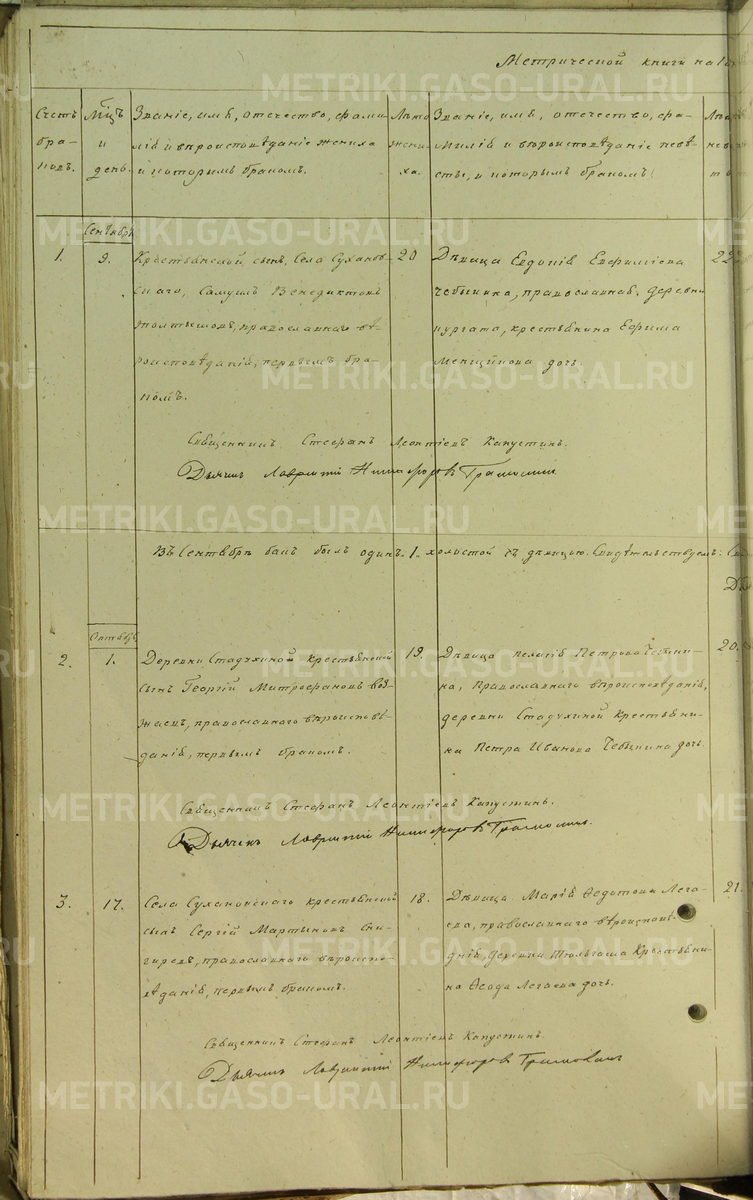 Метрической книги на 18
Счетъ
бра-
ковъ.
Мѣсяцъ
и
день.
Званіе, имя, отечество, фами-
лія и вѣроисповѣданіе жениха
и которымъ бракомъ.
Лѣта
жени-
ха.
Званіе, имя, отечество, фа-
милія и вѣроисповѣданіе невѣ-
сты, и которымъ бракомъ.
Лѣта
невѣ-
Сентябрь
1.
9.
Крестьянской сынъ, Села Суханов-
скаго, Самуилъ Венедиктовъ
православнаго вѣ-
роисповѣданія, первымъ бра-
комъ.
20
Дѣвица Евдокія Евфиміева
православная. деревни
крестьянина Ефима
дочь.
22
Священникъ Стефанъ Леонтіевъ Капустинъ.
Дьячекъ Лаврентій Никифоровъ
Въ Сентябрѣ бракъ былъ одинъ. 1. холостой съ дѣвицею. Свидѣтельствуемъ:
Октябрь
2.
1.
Деревни Стадухиной крестьянскій
сынъ Георгій Митрофановъ
православнаго вѣроисповѣ-
данія, первымъ бракомъ.
19.
Дѣвица Пелагія Петрова Чебыки-
на, Православнаго вѣроисповѣданія,
деревни Стадухиной крестьяни-
на Петра Иванова Чебыкина дочь.
20.
Священникъ Стефанъ Леонтіевъ Капустинъ.
Дьячекъ Лаврентій Никифоровъ
3.
17.
Села Сухановскаго крестьянскій
сынъ Сергій Мартыновъ Сни-
гиревъ, православнаго вѣроиспо-
вѣданія, первымъ бракомъ.
18.
Дѣвица Марія Ѳедотова Лега-
ева, православнаго вѣроисповѣ-
данія, деревни Крестьяни-
на Ѳедота Легаева дочь.
21.
Священникъ Стефанъ Леонтіевъ Капустинъ.
Дьячекъ Лаврентій Никифоровъ
METRIKI.GASO-URAL.RU